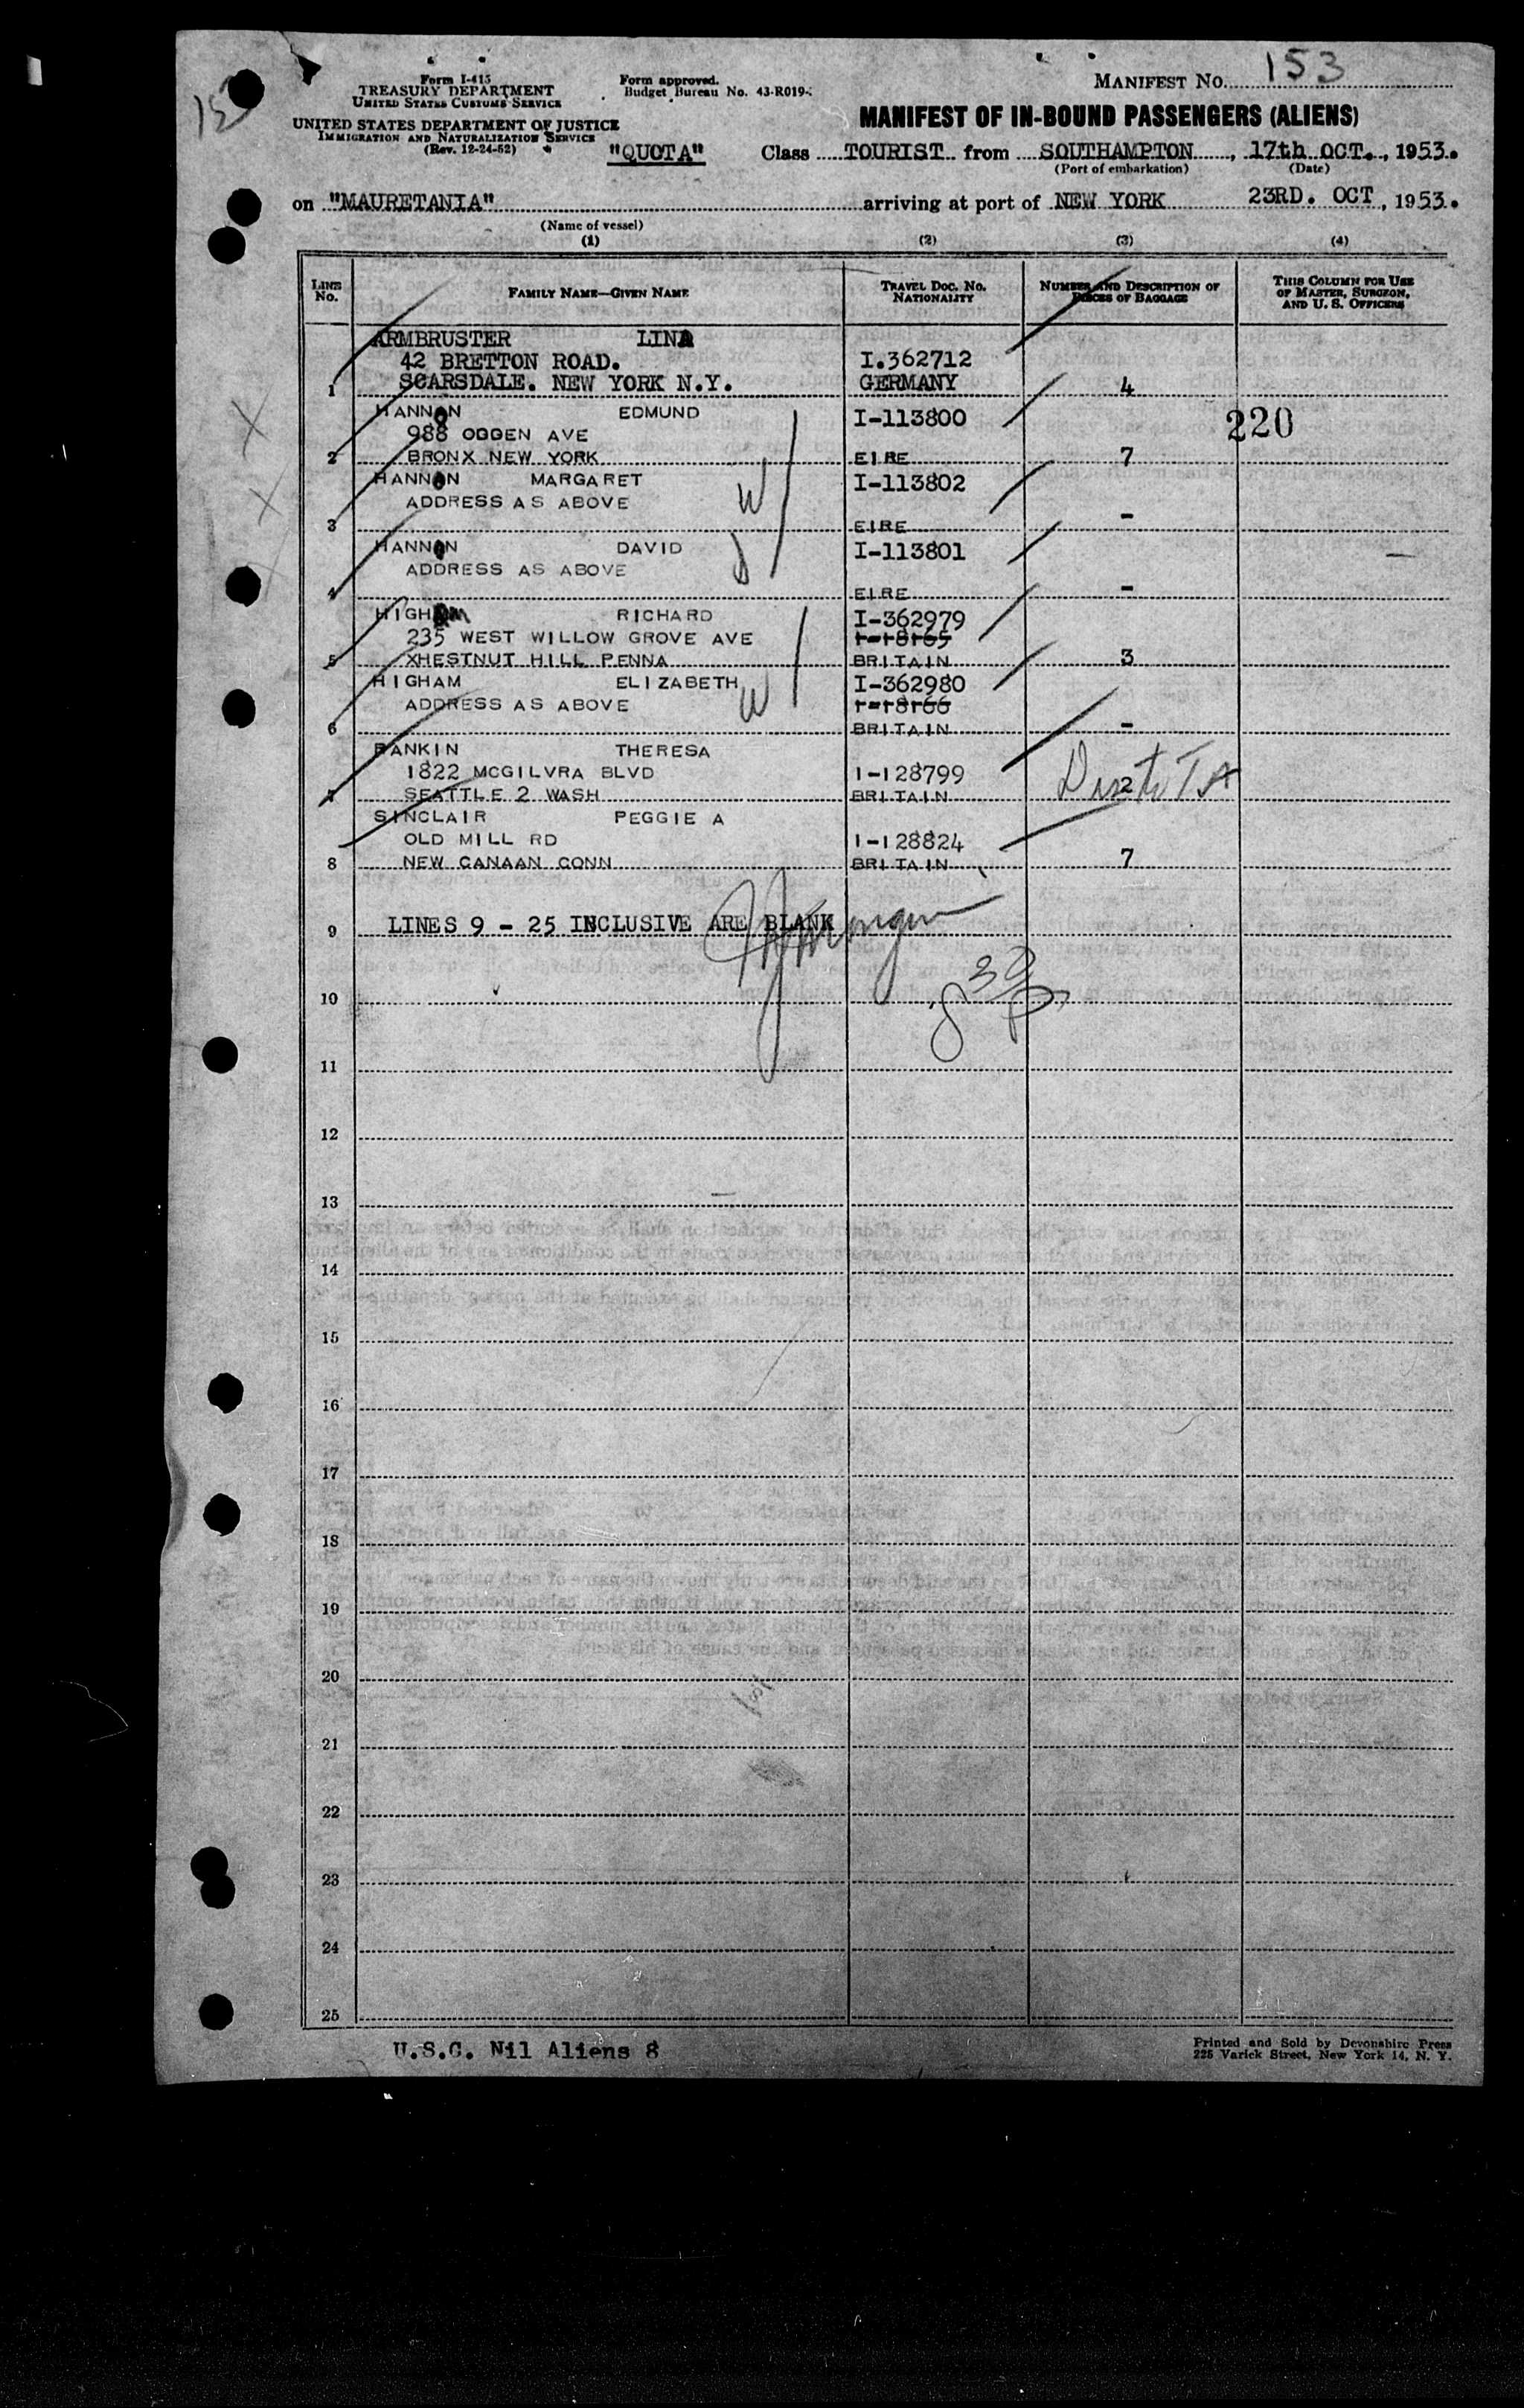 153
Form I-415
TREASURY DEPARTMENT
UNITED STATES CUSTOMS SERVICE
UNITED STATES DEPARTMENT OF JUSTICE
IMMIGRATION AND NATURALIZATION SERVICE
(Rev. 12-24-52)
Form approved.
Budget Bureau No. 43-R019-
MANIFEST No. 153
MANIFEST OF IN-BOUND PASSENGERS (ALIENS)
"QUOTA" Class TOURIST from SOUTHAMPTON, 17th OCT., 1953.
(Port of embarkation) (Date)
on "MAURETANIA" arriving at port of NEW YORK 23RD. OCT, 1953.
(Name of vessel)
(1) (2) (3) (4)
LINE No. FAMILY NAME—GIVEN NAME TRAVEL DOC. NO. NATIONALITY NUMBER AND DESCRIPTION OF PIECES OF BAGGAGE THIS COLUMN FOR USE OF MASTER, SURGEON, AND U. S. OFFICERS
ARMBRUSTER LINA
42 BRETTON ROAD. I.362712
1 SCARSDALE. NEW YORK N.Y. GERMANY 4
HANNON EDMUND I-113800 220
988 OGDEN AVE
2 BRONX NEW YORK EIRE 7
HANNON MARGARET I-113802
ADDRESS AS ABOVE W
3 EIRE -
HANNON DAVID I-113801
ADDRESS AS ABOVE
4 EIRE -
HIGHAM RICHARD I-362979
235 WEST WILLOW GROVE AVE I-18165
5 XHESTNUT HILL PENNA BRITAIN 3
HIGHAM ELIZABETH I-362980
ADDRESS AS ABOVE W I-18166
6 BRITAIN -
RANKIN THERESA
1822 MCGILVRA BLVD I-128799
7 SEATTLE 2 WASH BRITAIN 2
SINCLAIR PEGGIE A
OLD MILL RD I-128824
8 NEW CANAAN CONN BRITAIN 7
9 LINES 9 - 25 INCLUSIVE ARE BLANK
10
11
12
13
14
15
16
17
18
19
20
21
22
23
24
25
U.S.C. Nil Aliens 8
Printed and Sold by Devonshire Press
225 Varick Street, New York 14, N. Y.